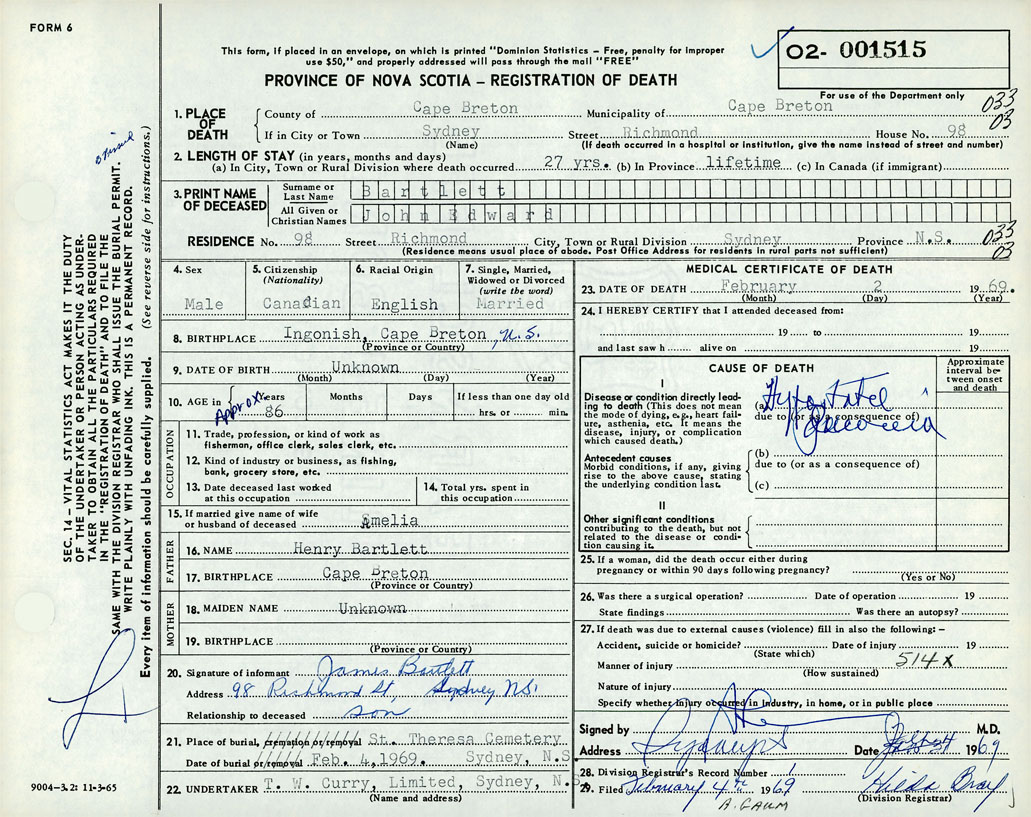 FORM 6
This form, if placed in an envelope, on which is printed "Dominion Statistics – Free, penalty for improper
use $50," and properly addressed will pass through the mail "FREE"
O2- 001515
PROVINCE OF NOVA SCOTIA – REGISTRATION OF DEATH
For use of the Department only
033
03
1. PLACE OF DEATH
County of Cape Breton Municipality of Cape Breton
If in City or Town Sydney Street Richmond House No. 98
(Name) (If death occurred in a hospital or institution, give the name instead of street and number)
2. LENGTH OF STAY (in years, months and days)
(a) In City, Town or Rural Division where death occurred 27 yrs. (b) In Province lifetime (c) In Canada (if immigrant)
3. PRINT NAME OF DECEASED
Surname or Last Name Bartlett
All Given or Christian Names John Edward
RESIDENCE No. 98 Street Richmond City, Town or Rural Division Sydney Province N.S. 033
(Residence means usual place of abode. Post Office Address for residents in rural parts not sufficient) 03
4. Sex
Male
5. Citizenship
(Nationality)
Canadian
6. Racial Origin
English
7. Single, Married,
Widowed or Divorced
(write the word)
Married
8. BIRTHPLACE Ingonish, Cape Breton N.S.
(Province or Country)
9. DATE OF BIRTH Unknown
(Month) (Day) (Year)
10. AGE in Years Months Days If less than one day old
Approx. 86 hrs. or min.
OCCUPATION
11. Trade, profession, or kind of work as
fisherman, office clerk, sales clerk, etc.
12. Kind of industry or business, as fishing,
bank, grocery store, etc.
13. Date deceased last worked
at this occupation
14. Total yrs. spent in
this occupation
15. If married give name of wife
or husband of deceased Amelia
FATHER
16. NAME Henry Bartlett
17. BIRTHPLACE Cape Breton
(Province or Country)
MOTHER
18. MAIDEN NAME Unknown
19. BIRTHPLACE
(Province or Country)
20. Signature of informant James Bartlett
Address 98 Richmond St, Sydney NS.
Relationship to deceased son
21. Place of burial, cremation or removal St. Theresa Cemetery
Date of burial or removal Feb. 4, 1969. Sydney, N.S.
22. UNDERTAKER T. W. Curry, Limited, Sydney, N.S.
(Name and address)
MEDICAL CERTIFICATE OF DEATH
23. DATE OF DEATH February 2 1969.
(Month) (Day) (Year)
24. I HEREBY CERTIFY that I attended deceased from:
19 to 19
and last saw h alive on 19
CAUSE OF DEATH
Approximate
interval be-
tween onset
and death
I
Disease or condition directly lead-
ing to death (This does not mean
the mode of dying, e.g., heart fail-
ure, asthenia, etc. It means the
disease, injury, or complication
which caused death.)
(a)
due to (or as a consequence of)
Antecedent causes
Morbid conditions, if any, giving
rise to the above cause, stating
the underlying condition last.
(b)
due to (or as a consequence of)
(c)
II
Other significant conditions
contributing to the death, but not
related to the disease or condi-
tion causing it.
25. If a woman, did the death occur either during
pregnancy or within 90 days following pregnancy?
(Yes or No)
26. Was there a surgical operation? Date of operation 19
State findings Was there an autopsy?
27. If death was due to external causes (violence) fill in also the following: –
Accident, suicide or homicide? Date of injury 19
(State which) 514X
Manner of injury
(How sustained)
Nature of injury
Specify whether injury occurred in industry, in home, or in public place
Signed by M.D.
Address Date 1969
28. Division Registrar's Record Number 1
29. Filed February 4th 1969
A. GAUM
(Division Registrar)
SEC. 14 – VITAL STATISTICS ACT MAKES IT THE DUTY
OF THE UNDERTAKER OR PERSON ACTING AS UNDER-
TAKER TO OBTAIN ALL THE PARTICULARS REQUIRED
IN THE "REGISTRATION OF DEATH" AND TO FILE THE
SAME WITH THE DIVISION REGISTRAR WHO SHALL ISSUE THE BURIAL PERMIT.
WRITE PLAINLY WITH UNFADING INK. THIS IS A PERMANENT RECORD.
Every item of information should be carefully supplied. (See reverse side for instructions.)
9004-3.2: 11-3-65